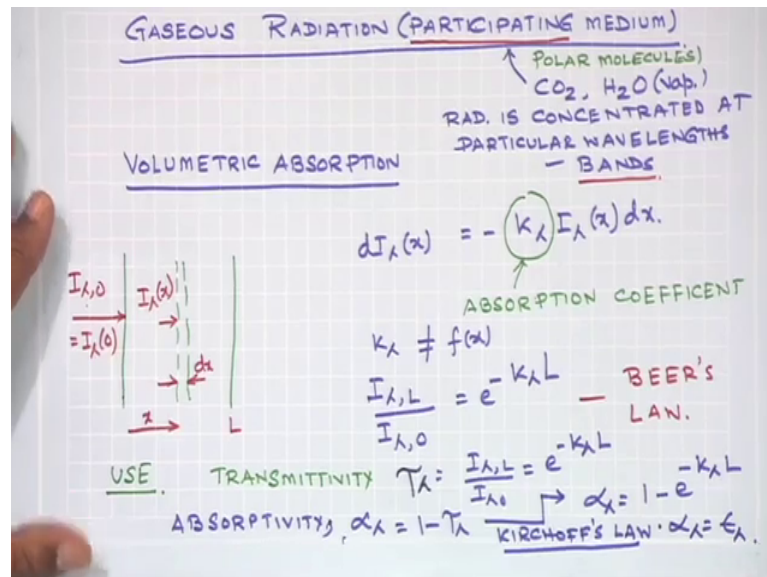 GASEOUS RADIATION (PARTICIPATING MEDIUM)
POLAR MOLECULES)
CO₂, H₂O (vap.)
RAD. IS CONCENTRATED AT
PARTICULAR WAVELENGTHS
– BANDS
VOLUMETRIC ABSORPTION
dIλ(x) = - Kλ Iλ(x) dx.
ABSORPTION COEFFICENT
Iλ,0
= Iλ(0)
Iλ(x)
dx
x
L
Kλ ≠ f(x)
Iλ,L / Iλ,0 = e^-KλL — BEER'S
LAN.
USE. TRANSMITTIVITY τλ = Iλ,L / Iλ0 = e^-KλL → αλ = 1 - e^-KλL
ABSORPTIVITY, αλ = 1 - τλ KIRCHOFF'S LAW. αλ = ελ.